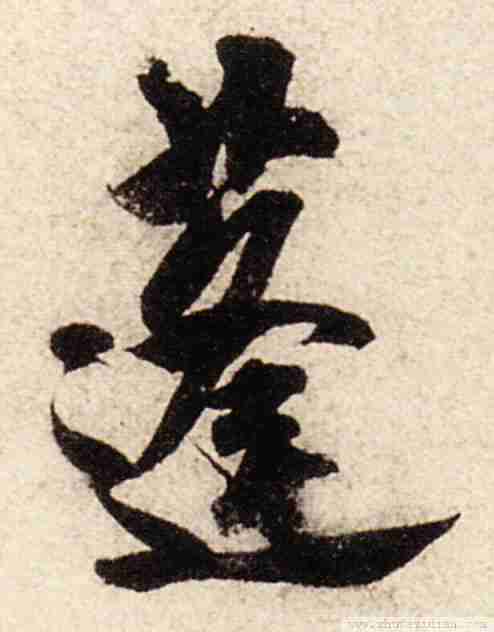 蓬
www.shufazidian.com